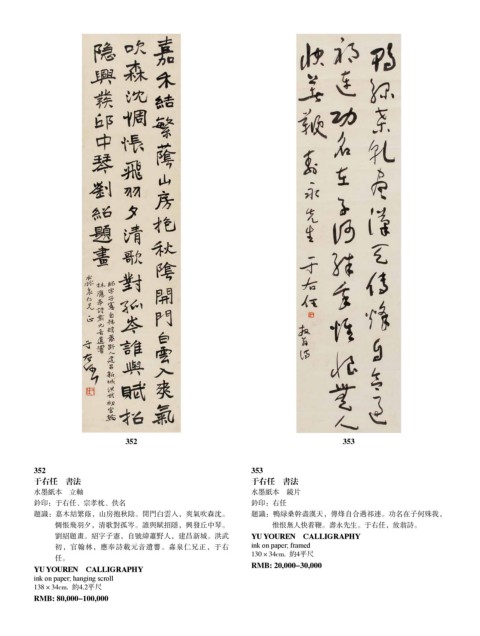 嘉木結繁蔭山房抱秋陰開門白雲入爽氣
吹森沈惆悵飛羽夕清歌對孤岑誰與賦招
隱興發邱中琴劉紹題畫
紹字子憲自號緯蕭野人建昌新城洪武初官翰
林應奉詩載元音遺響
森泉仁兄正
于右任
鴨綠桑乾盡漢天傳烽自合過
祁連功名在子何殊我惟恨無人
快著鞭 壽永先生 于右任
放翁詩
352
353
352
于右任 書法
水墨紙本 立軸
鈐印：于右任、宗孝忱、佚名
題識：嘉木結繁蔭，山房抱秋陰。開門白雲入，爽氣吹森沈。
惆悵飛羽夕，清歌對孤岑。誰與賦招隱，興發丘中琴。
劉紹題畫。紹字子憲，自號緯蕭野人，建昌新城。洪武
初，官翰林，應奉詩載元音遺響。森泉仁兄正，于右
任。
YU YOUREN CALLIGRAPHY
ink on paper; hanging scroll
138×34cm. 約4.2平尺
RMB: 80,000–100,000
353
于右任 書法
水墨紙本 鏡片
鈐印：右任
題識：鴨綠桑幹盡漢天，傳烽自合過祁連。功名在子何殊我，
惟恨無人快着鞭。壽永先生。于右任，放翁詩。
YU YOUREN CALLIGRAPHY
ink on paper; framed
130×34cm. 約4平尺
RMB: 20,000–30,000